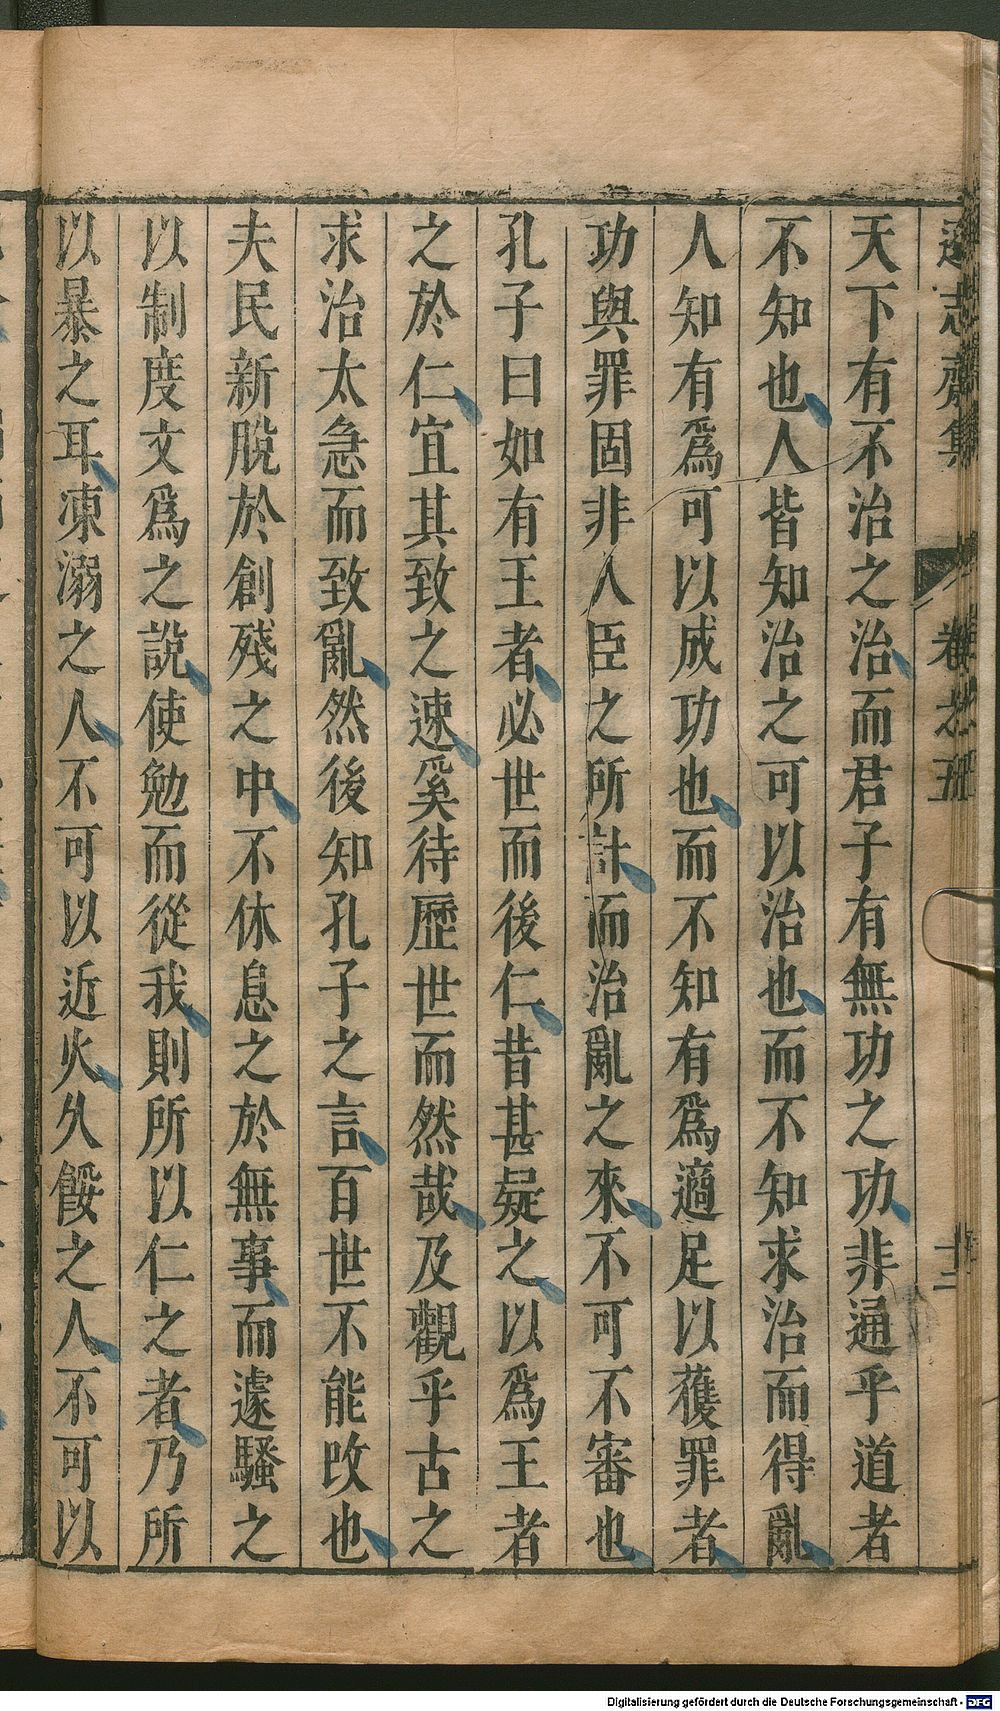 遜志齋集 卷之五 十二
天下有不治之治而君子有無功之功非通乎道者
不知也人皆知治之可以治也而不知求治而得亂
人知有爲可以成功也而不知有爲適足以獲罪者
功與罪固非人臣之所計而治亂之來不可不審也
孔子曰如有王者必世而後仁昔甚疑之以爲王者
之於仁宜其致之速奚待歷世而然哉及觀乎古之
求治太急而致亂然後知孔子之言百世不能改也
夫民新脫於創殘之中不休息之於無事而遽騷之
以制度文爲之說使勉而從我則所以仁之者乃所
以暴之耳凍溺之人不可以近火久餒之人不可以
Digitalisierung gefördert durch die Deutsche Forschungsgemeinschaft - DFG